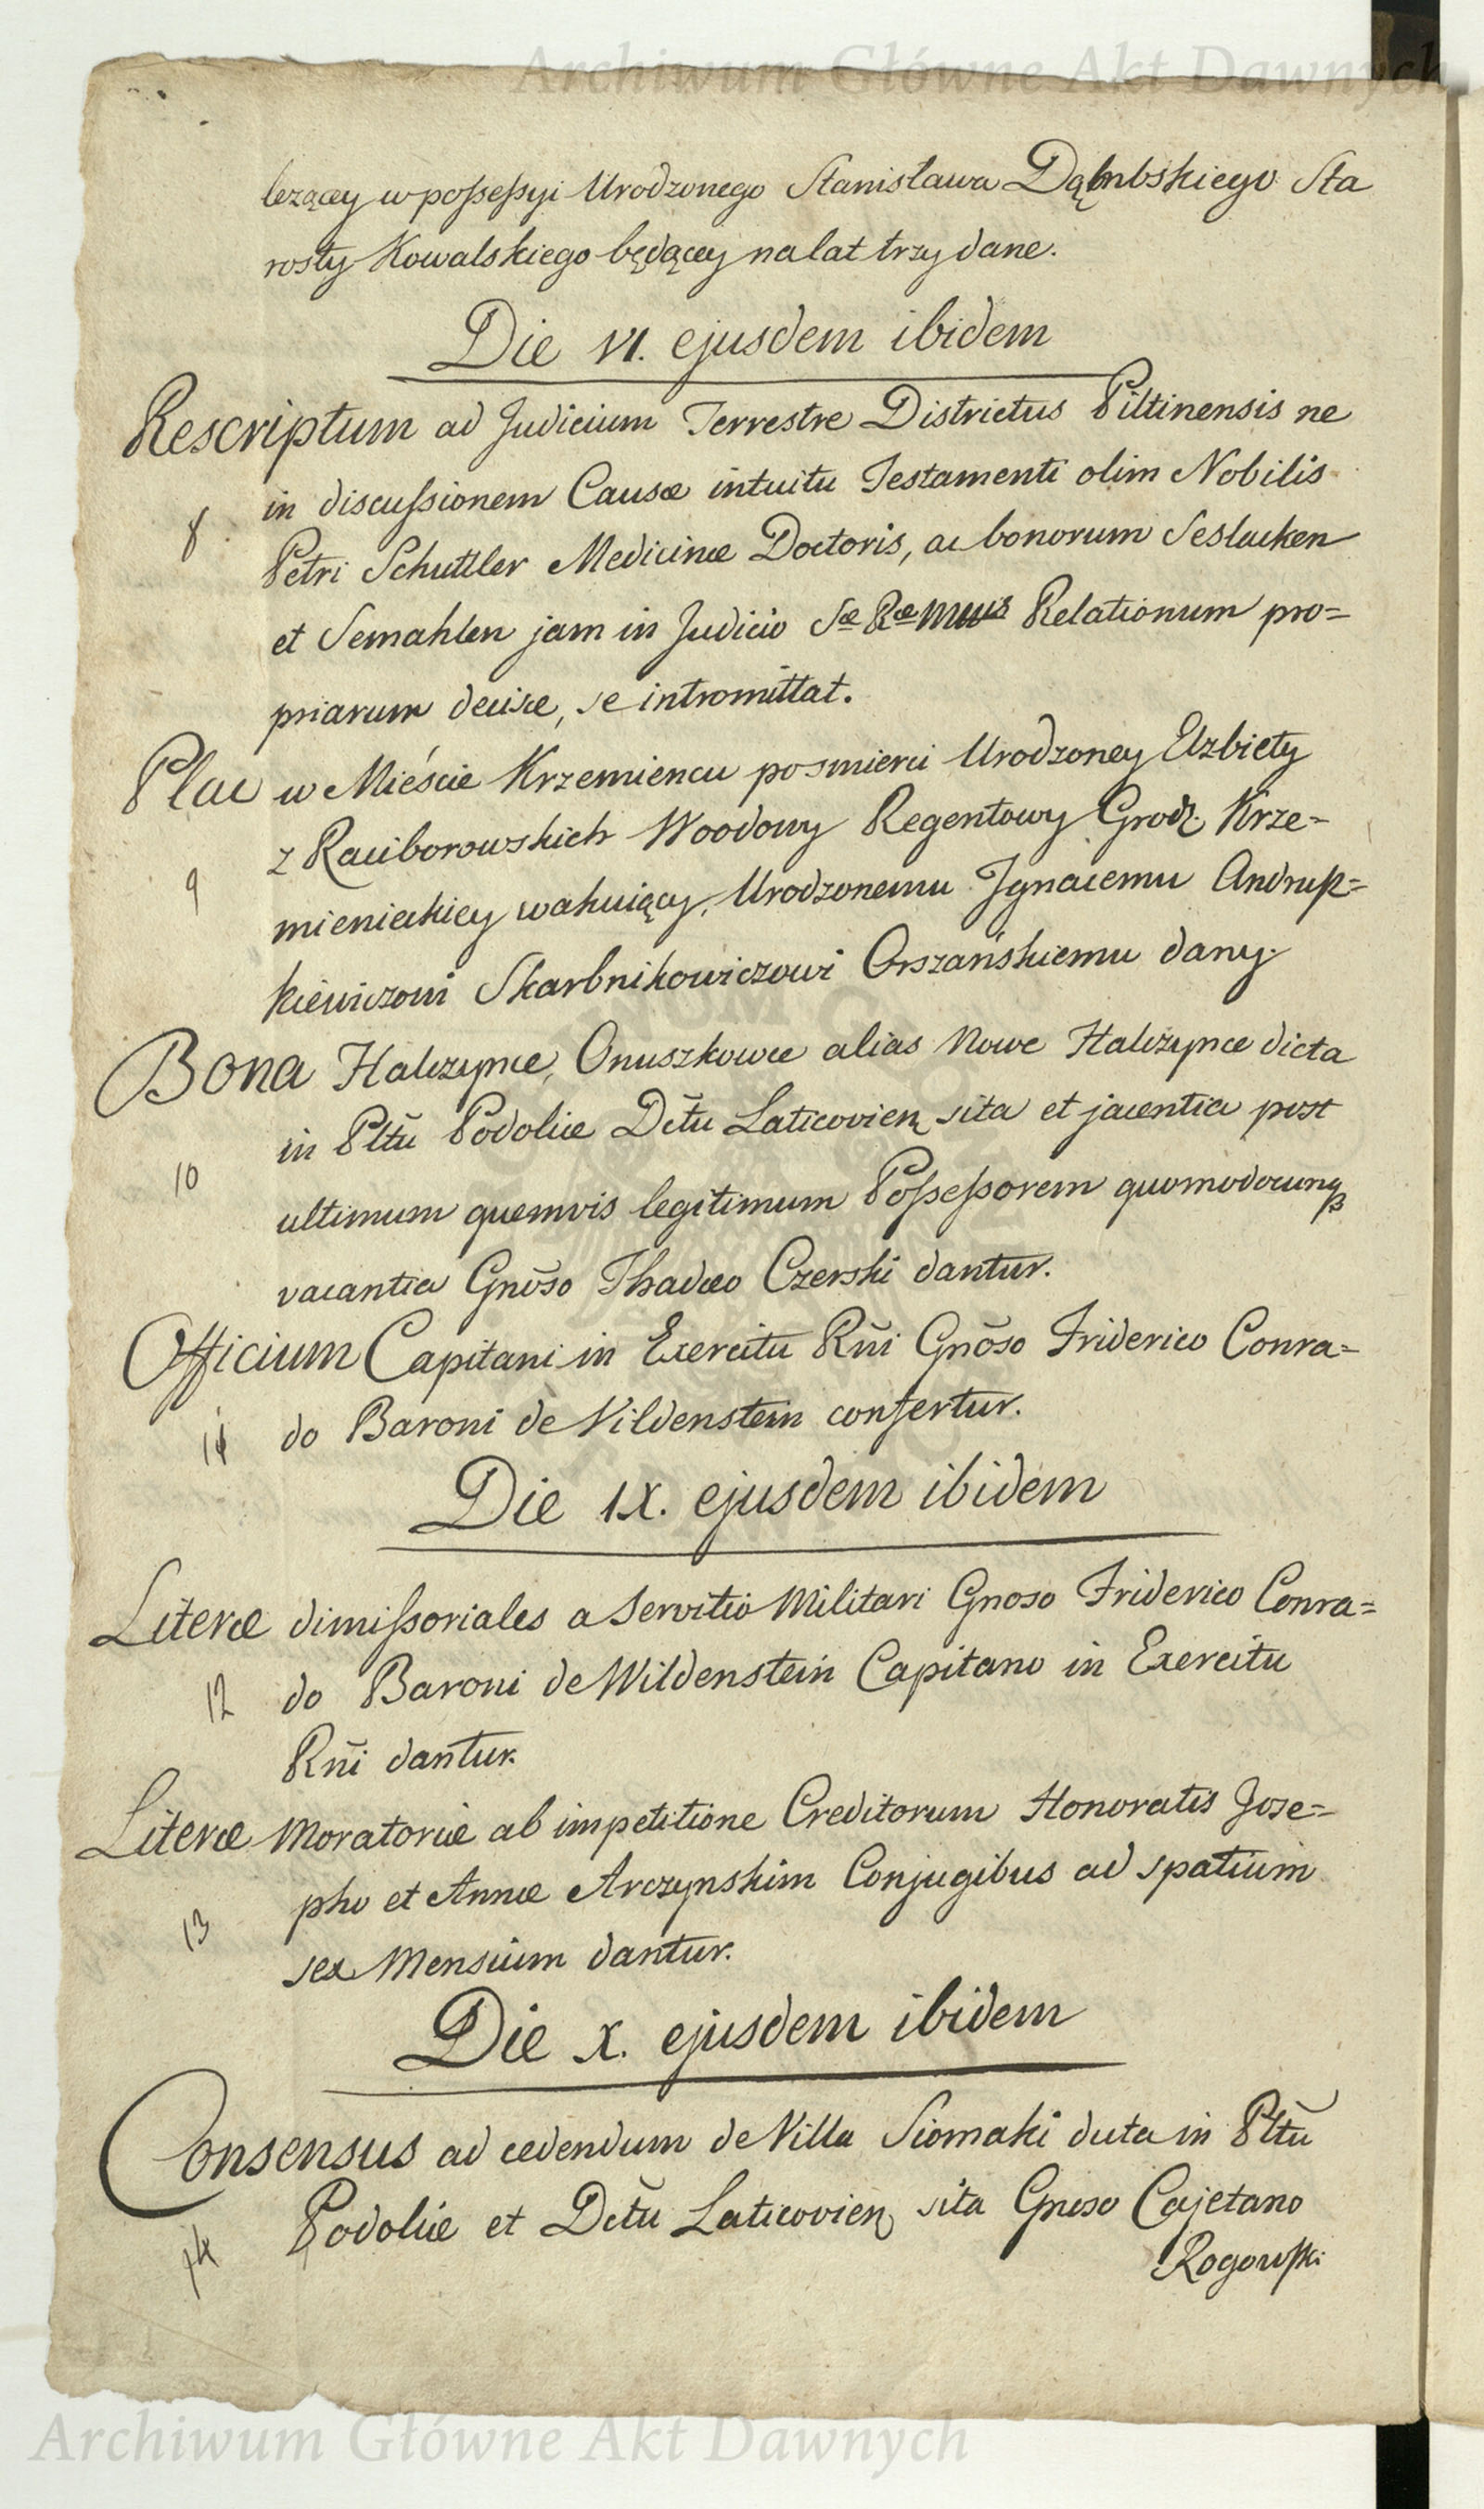 Archiwum Główne Akt Dawnych
leżący w possessyi Urodzonego Stanisława Dąmbskiego Sta
rosty Kowalskiego będący na lat trzy dane.
Die VI. ejusdem ibidem
Rescriptum ad Judicium Terrestre Districtus Piltinensis ne
in discussionem Causæ intuitu Testamenti olim Nobilis
8
Petri Schuttler Medicinæ Doctoris, ac bonorum Seslauken
et Semahlen jam in Judicio Sæ Ræ Mttis Relationum pro=
priarum decisæ, se intromittat.
Plac w Mieście Krzemiencu po smierci Urodzoney Elzbiety
z Raciborowskich Woodowy Regentowy Grodz. Krze=
9
mienieckiey wakuiący, Urodzonemu Jgnacemu Andrusz=
kiewiczowi Skarbnikowiczowi Orszańskiemu dany.
Bona Halczynce, Onuszkowce alias Nowe Halczynce dicta
in Pltũ Podoliæ Dctũ Laticovien sita et jacentia post
10
ultimum quemvis legitimum Possessorem quomodocunqꝫ
vacantia Gnõso Thadæo Czerski dantur.
Officium Capitani in Exercitu Rñi Gnõso Friderico Conra=
11 do Baroni de Vildenstein confertur.
Die IX. ejusdem ibidem
Literæ dimissoriales a Servitio Militari Gnoso Friderico Conra=
12 do Baroni de Wildenstein Capitano in Exercitu
Rñi dantur.
Literæ Moratoriæ ab impetitione Creditorum Honoratis Jose=
pho et Annæ Arczynskim Conjugibus ad spatium
13
sex Mensium dantur.
Die X. ejusdem ibidem
Consensus ad cedendum de Villa Siomaki dicta in Pltũ
Podoliæ et Dctũ Laticovien sita Gnoso Cajetano
14
Rogowski
Archiwum Główne Akt Dawnych